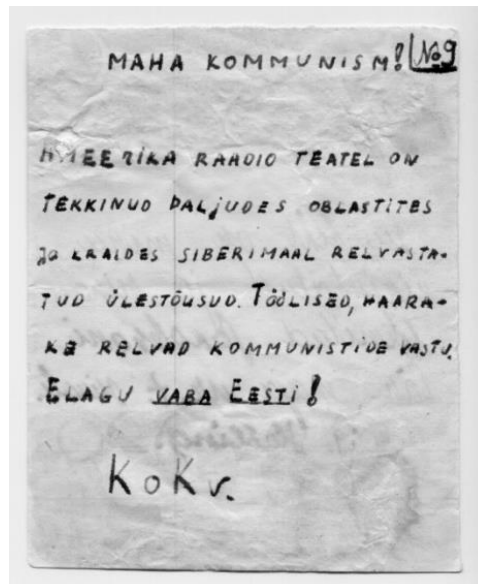 MAHA KOMMUNISM! No 9
AMEERIKA RAADIO TEATEL ON
TEKKINUD PALJUDES OBLASTITES
JA KRAIDES SIBERIMAAL RELVASTA-
TUD ÜLESTÕUSUD. TÖÖLISED, HAARA-
KE RELVAD KOMMUNISTIDE VASTU.
ELAGU VABA EESTI!
KOKV.